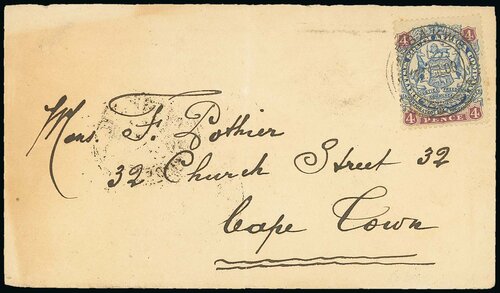 4 4
4 PENCE 4
Mons. F. Pothier
32 Church Street 32
Cape Town